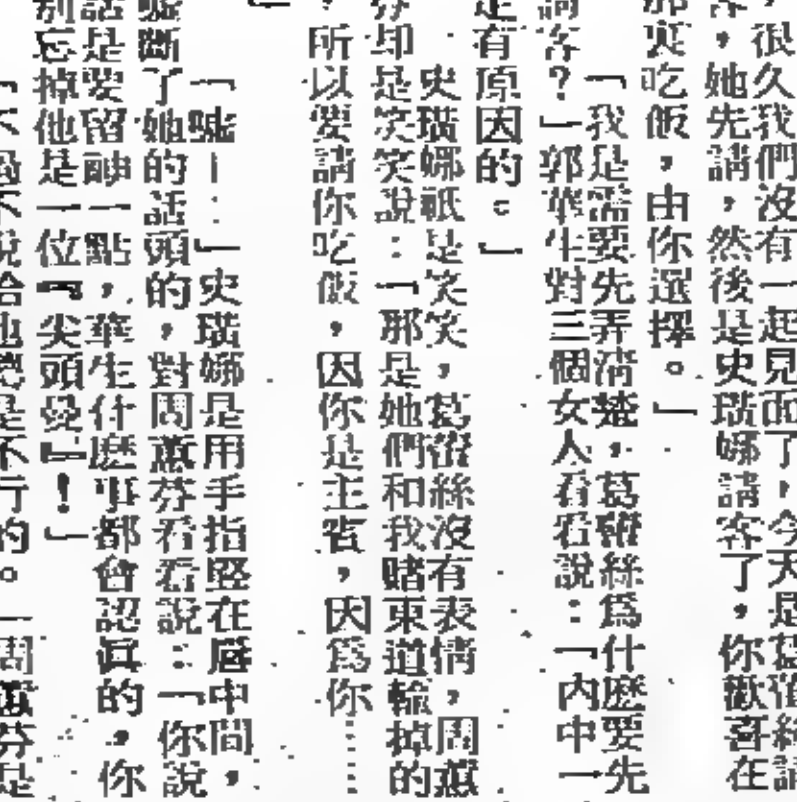 ，很久我們沒有一起見面了，今天是葛蕾絲請
客，她先請，然後是史璜娜請客了，你歡喜在
那裏吃飯，由你選擇。」
「我是需要先弄清楚，葛蕾絲爲什麼要先
請客？」郭華生對三個女人看看說：「內中一
定有原因的。」
史璜娜祇是笑笑，葛蕾絲沒有表情，周蕙
芬却是笑笑說：「那是她們和我賭東道輸掉的
，所以要請你吃飯，因你是主賓，因爲你……
」
「噓—：」史璜娜是用手指竪在唇中間，
噓斷了她的話頭的，對周蕙芬看看說：「你說
話是要留神一點，華生什麼事都會認眞的，你
別忘掉他是一位『尖頭曼』！」
「不過不說給他聽是不行的。」周蕙芬是